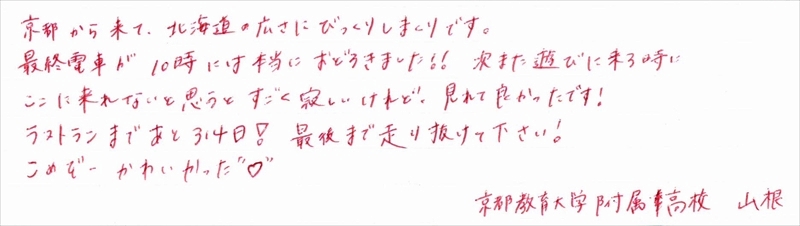 京都から来て、北海道の広さにびっくりしまくりです。
最終電車が10時には本当におどろきました!! 次また遊びに来る時に
ここに来れないと思うとすごく寂しいけれど、見れて良かったです!
ラストランまであと314日! 最後まで走り抜けて下さい!
こめぞー かわいかった"♡"
京都教育大学附属高校 山根